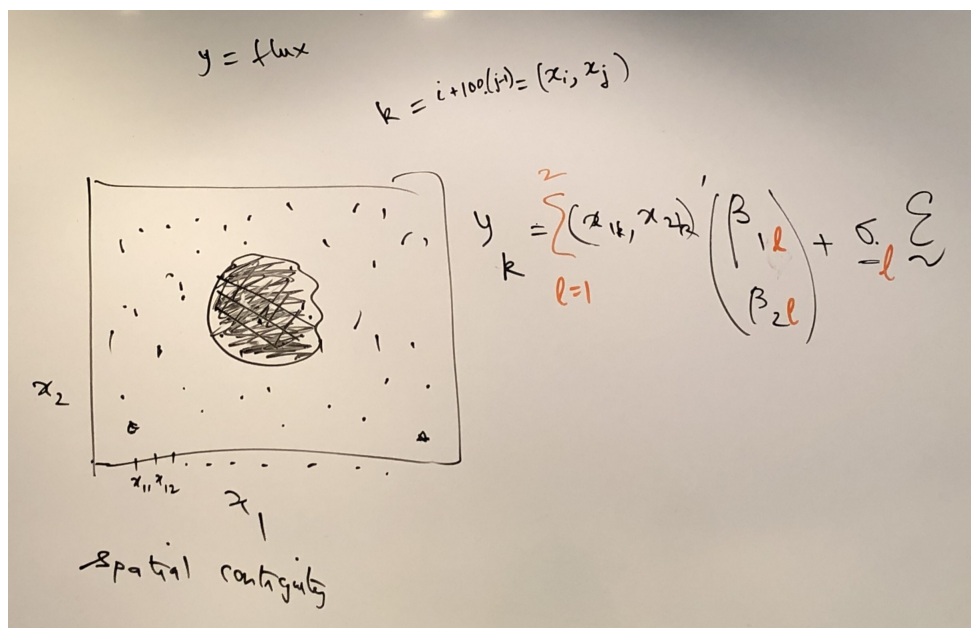 y = flux
k = i+100.(j-1) = (x_i, x_j)
y_k = Σ_{l=1}^{2} (x_{1k}, x_{2k})' (β_{1l} β_{2l}) + σ_l ε
x_2
x_{11} x_{12}
x_1
spatial contiguity